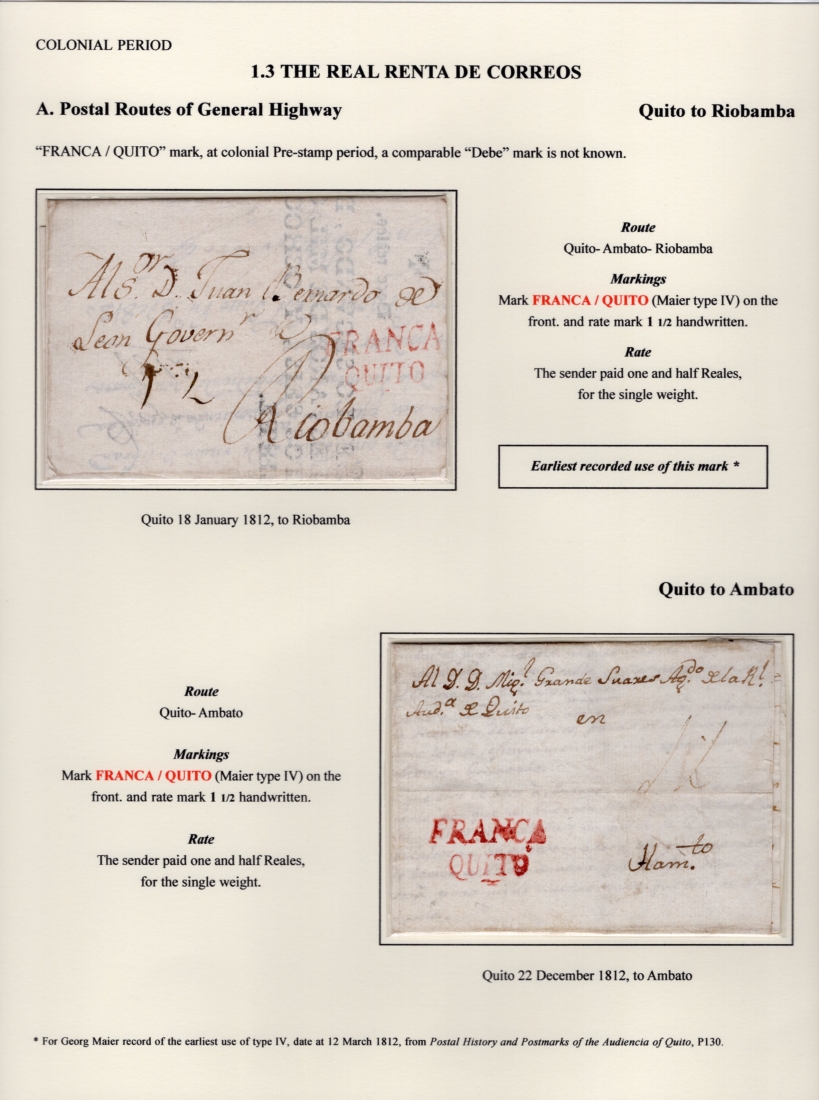 COLONIAL PERIOD
1.3 THE REAL RENTA DE CORREOS
A. Postal Routes of General Highway
Quito to Riobamba
“FRANCA / QUITO” mark, at colonial Pre-stamp period, a comparable “Debe” mark is not known.
Al Sor D. Juan Bernardo de
Leon Governr de
FRANCA
QUITO
1 1/2
Riobamba
Route
Quito- Ambato- Riobamba
Markings
Mark FRANCA / QUITO (Maier type IV) on the
front. and rate mark 1 1/2 handwritten.
Rate
The sender paid one and half Reales,
for the single weight.
Earliest recorded use of this mark *
Quito 18 January 1812, to Riobamba
Quito to Ambato
Route
Quito- Ambato
Markings
Mark FRANCA / QUITO (Maier type IV) on the
front. and rate mark 1 1/2 handwritten.
Rate
The sender paid one and half Reales,
for the single weight.
Al D. D. Migl. Grande Suares Agdo. de la Rl.
Auda. de Quito
en
FRANCA
QUITO
Hamto.
Quito 22 December 1812, to Ambato
* For Georg Maier record of the earliest use of type IV, date at 12 March 1812, from Postal History and Postmarks of the Audiencia of Quito, P130.